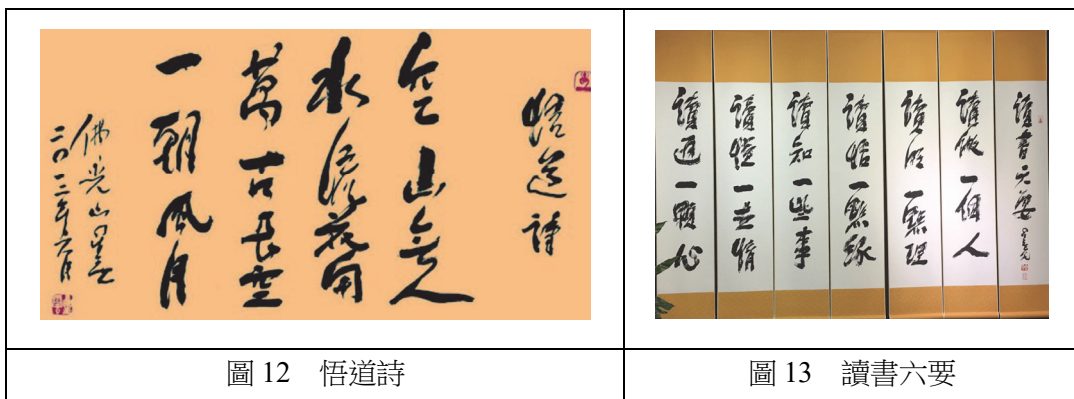 悟道詩
空山無人
水流花開
萬古長空
一朝風月
佛光山星雲
二〇一三年六月
讀書六要 星雲
讀做一個人
讀明一點理
讀悟一點緣
讀知一些事
讀懂一世情
讀通一顆心
圖 12 悟道詩
圖 13 讀書六要